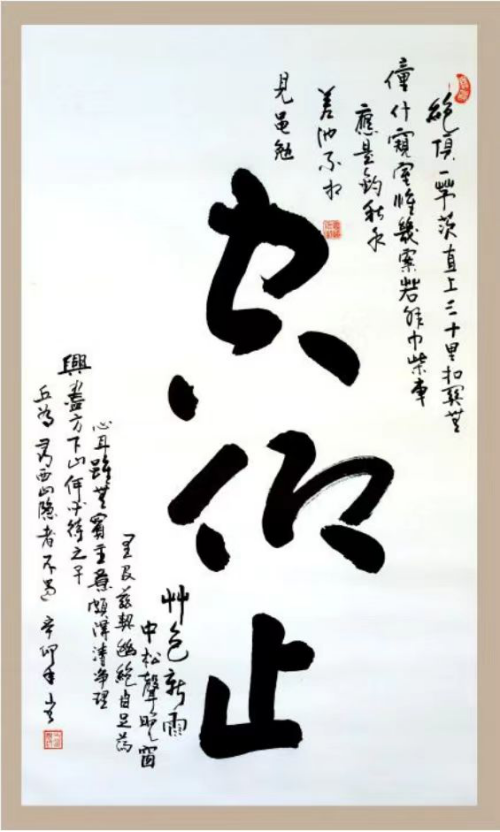 絶頂一茅茨直上三十里扣關無
僮仆窺室惟幾案若非巾柴車
應是釣秋水
差池不相
見黽勉
空仰止
艸色新雨
中松聲晚窗
里及茲契幽絶自足蕩
心耳雖無賓主意頗得清凈理
興盡方下山何必待之子
丘為尋西山隱者不遇 辛卯年